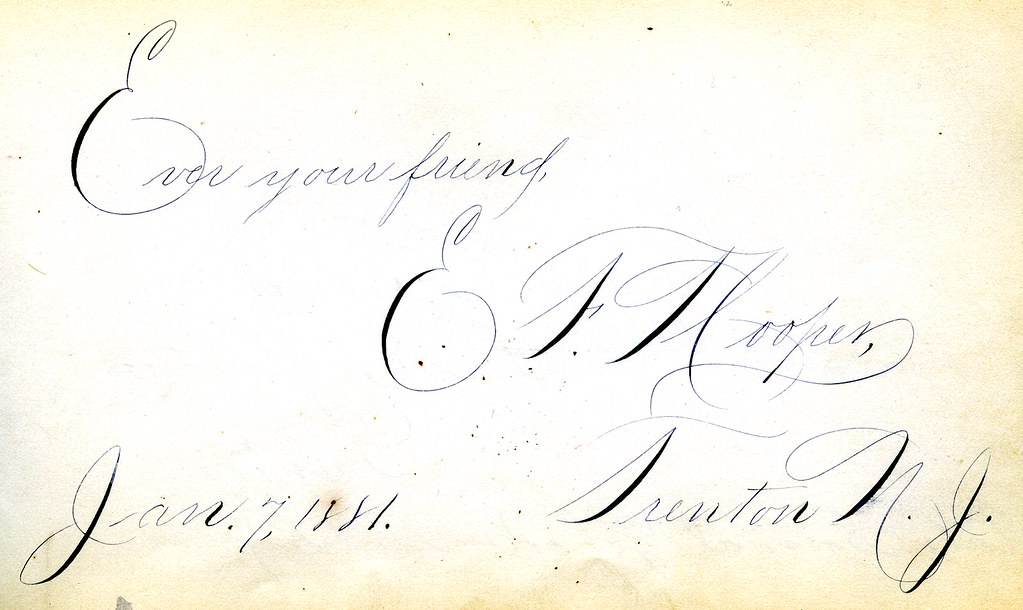 Ever your friend,
E. F. Hooper,
Jan. 7, 1881. Trenton N. J.